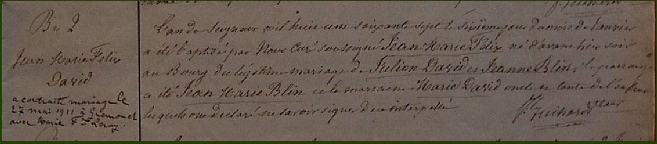 Bre 2
Jean Marie Felix
David
a contracté mariage le
27 mai 1911 à
avec Marie
L'an du Seigneur mil huit cent soixante sept le sixième jour du mois de Janvier
a été baptisé par Nous Curé soussigné Jean Marie Félix né d'avant hier soir
au Bourg du légitime mariage de Julien David et Jeanne Blin; le parrain
a été Jean Marie Blin et la marraine Marie David oncle et tante de l'enfant
lesquels ont déclaré ne savoir signer de ce interpellés